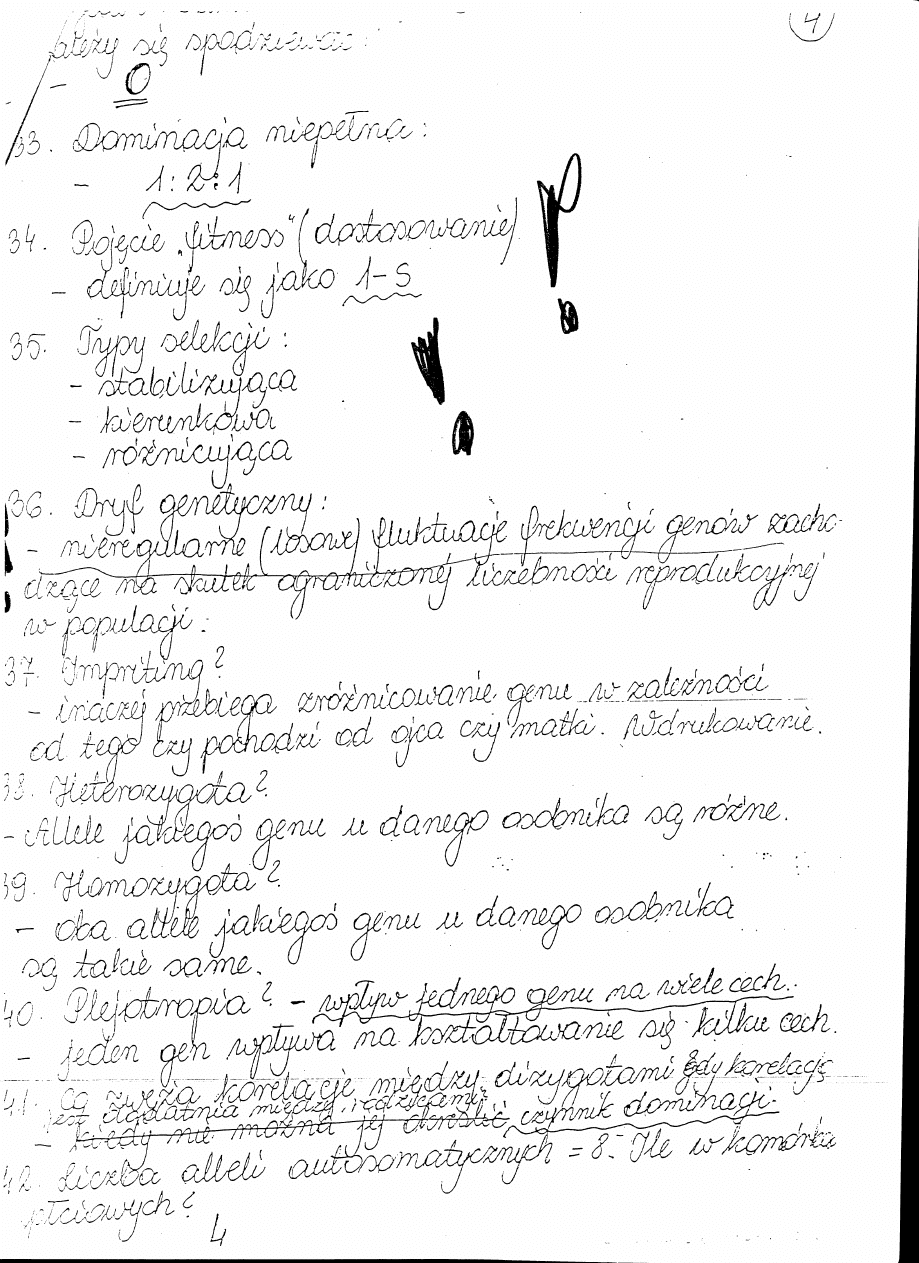 4
należy się spodziewać:
- 0
33. Dominacja niepełna:
- 1:2:1
34. Pojęcie „fitness" (dostosowanie)
- definiuje się jako 1-s
35. Typy selekcji:
- stabilizująca
- kierunkowa
- różnicująca
36. Dryf genetyczny:
- nieregularne (losowe) fluktuacje frekwencji genów zacho-
dzące na skutek ograniczonej liczebności reprodukcyjnej
w populacji:
37. Impriting?
- inaczej przebiega zróżnicowanie genu w zależności
od tego czy pochodzi od ojca czy matki. Wdrukowanie.
38. Heterozygota?
- Allele jakiegoś genu u danego osobnika są różne.
39. Homozygota?
- oba allele jakiegoś genu u danego osobnika
są takie same.
40. Plejotropia? - wpływ jednego genu na wiele cech.
- jeden gen wpływa na kształtowanie się kilku cech.
41. Co zwęża korelację między dizygotami gdy korelacja
jest dodatnia między rodzicami?
- kiedy nie można jej określić czynnik dominacji.
42. Liczba alleli autosomatycznych = 8. Ile w komórka
płciowych?
4